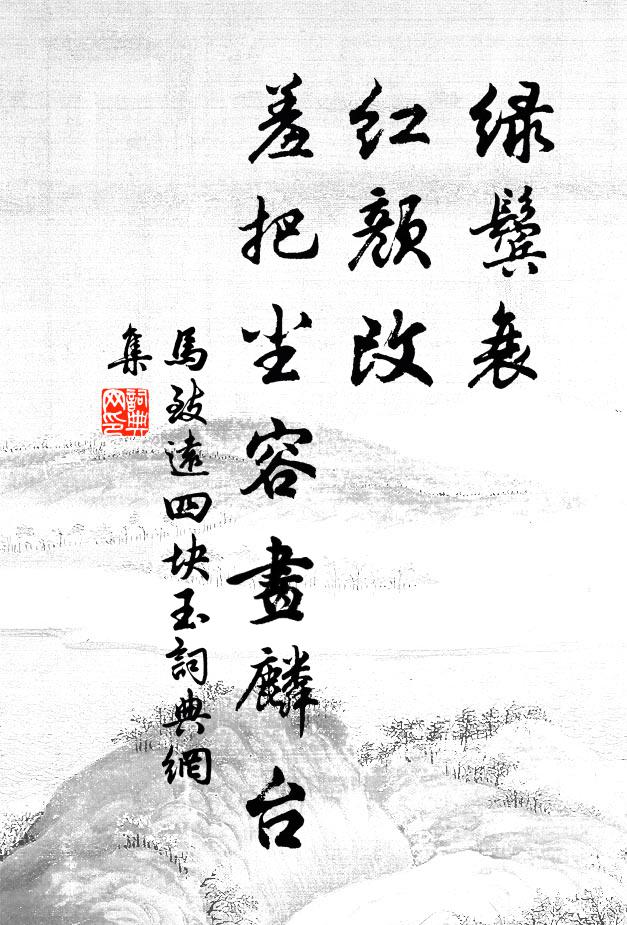 绿鬓衰
红颜改
羞把尘容畫麟台
馬致遠四块玉詞典網
集
詞典
网印